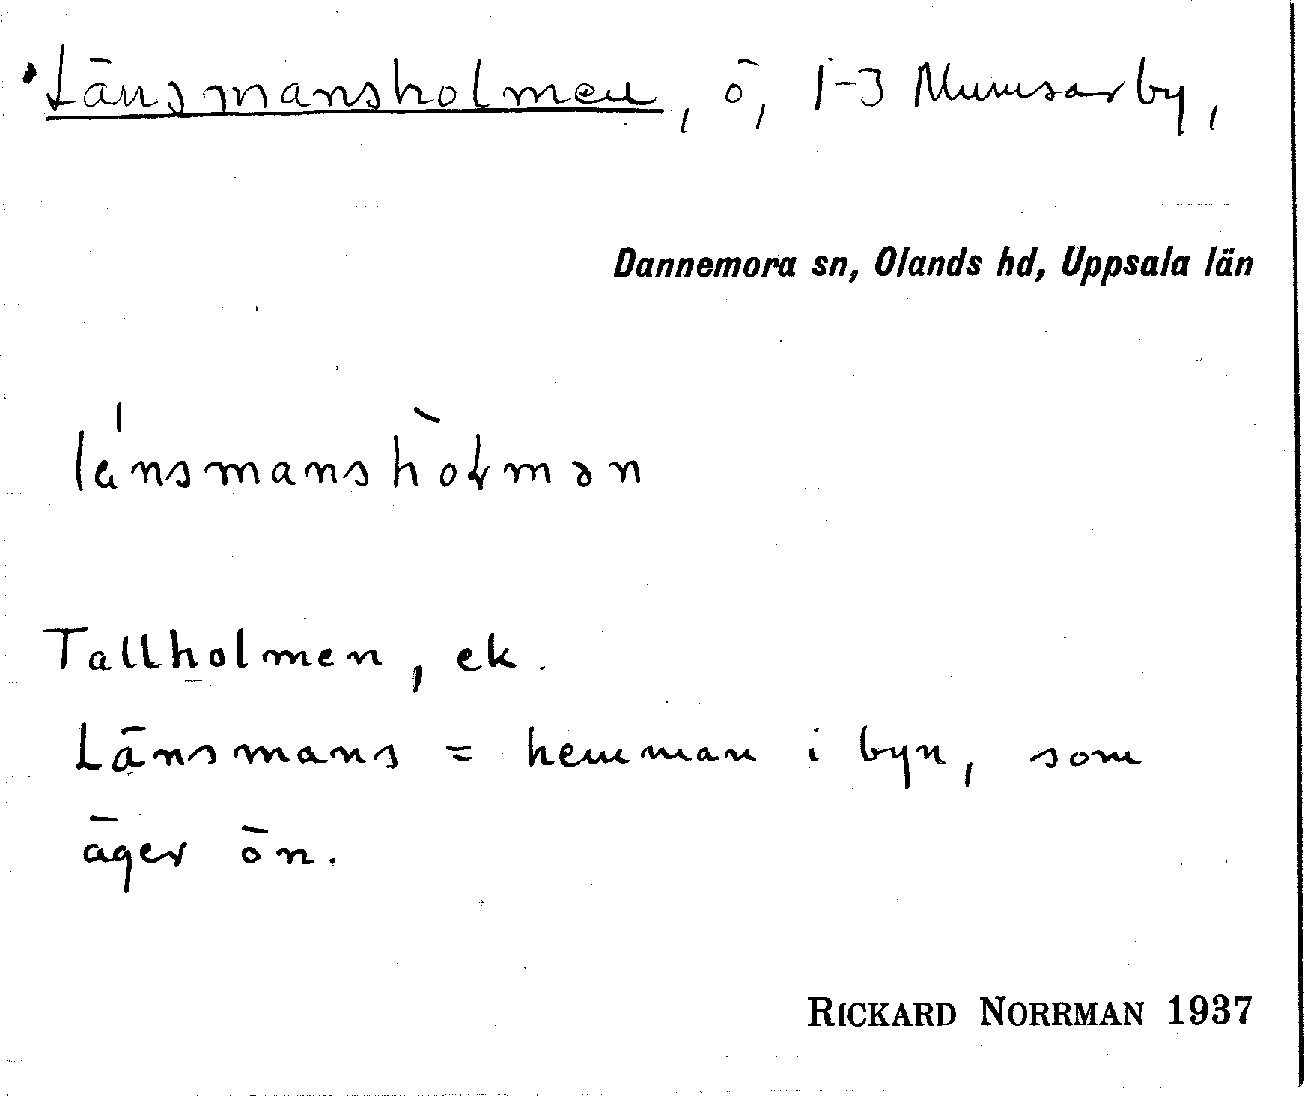 Länsmansholmen, ö, 1-3 Mumsarby,
Dannemora sn, Olands hd, Uppsala län
lä́nsmanshòlmən
Tallholmen, ek.
Länsmans = hemman i byn, som
äger ön.
RICKARD NORRMAN 1937